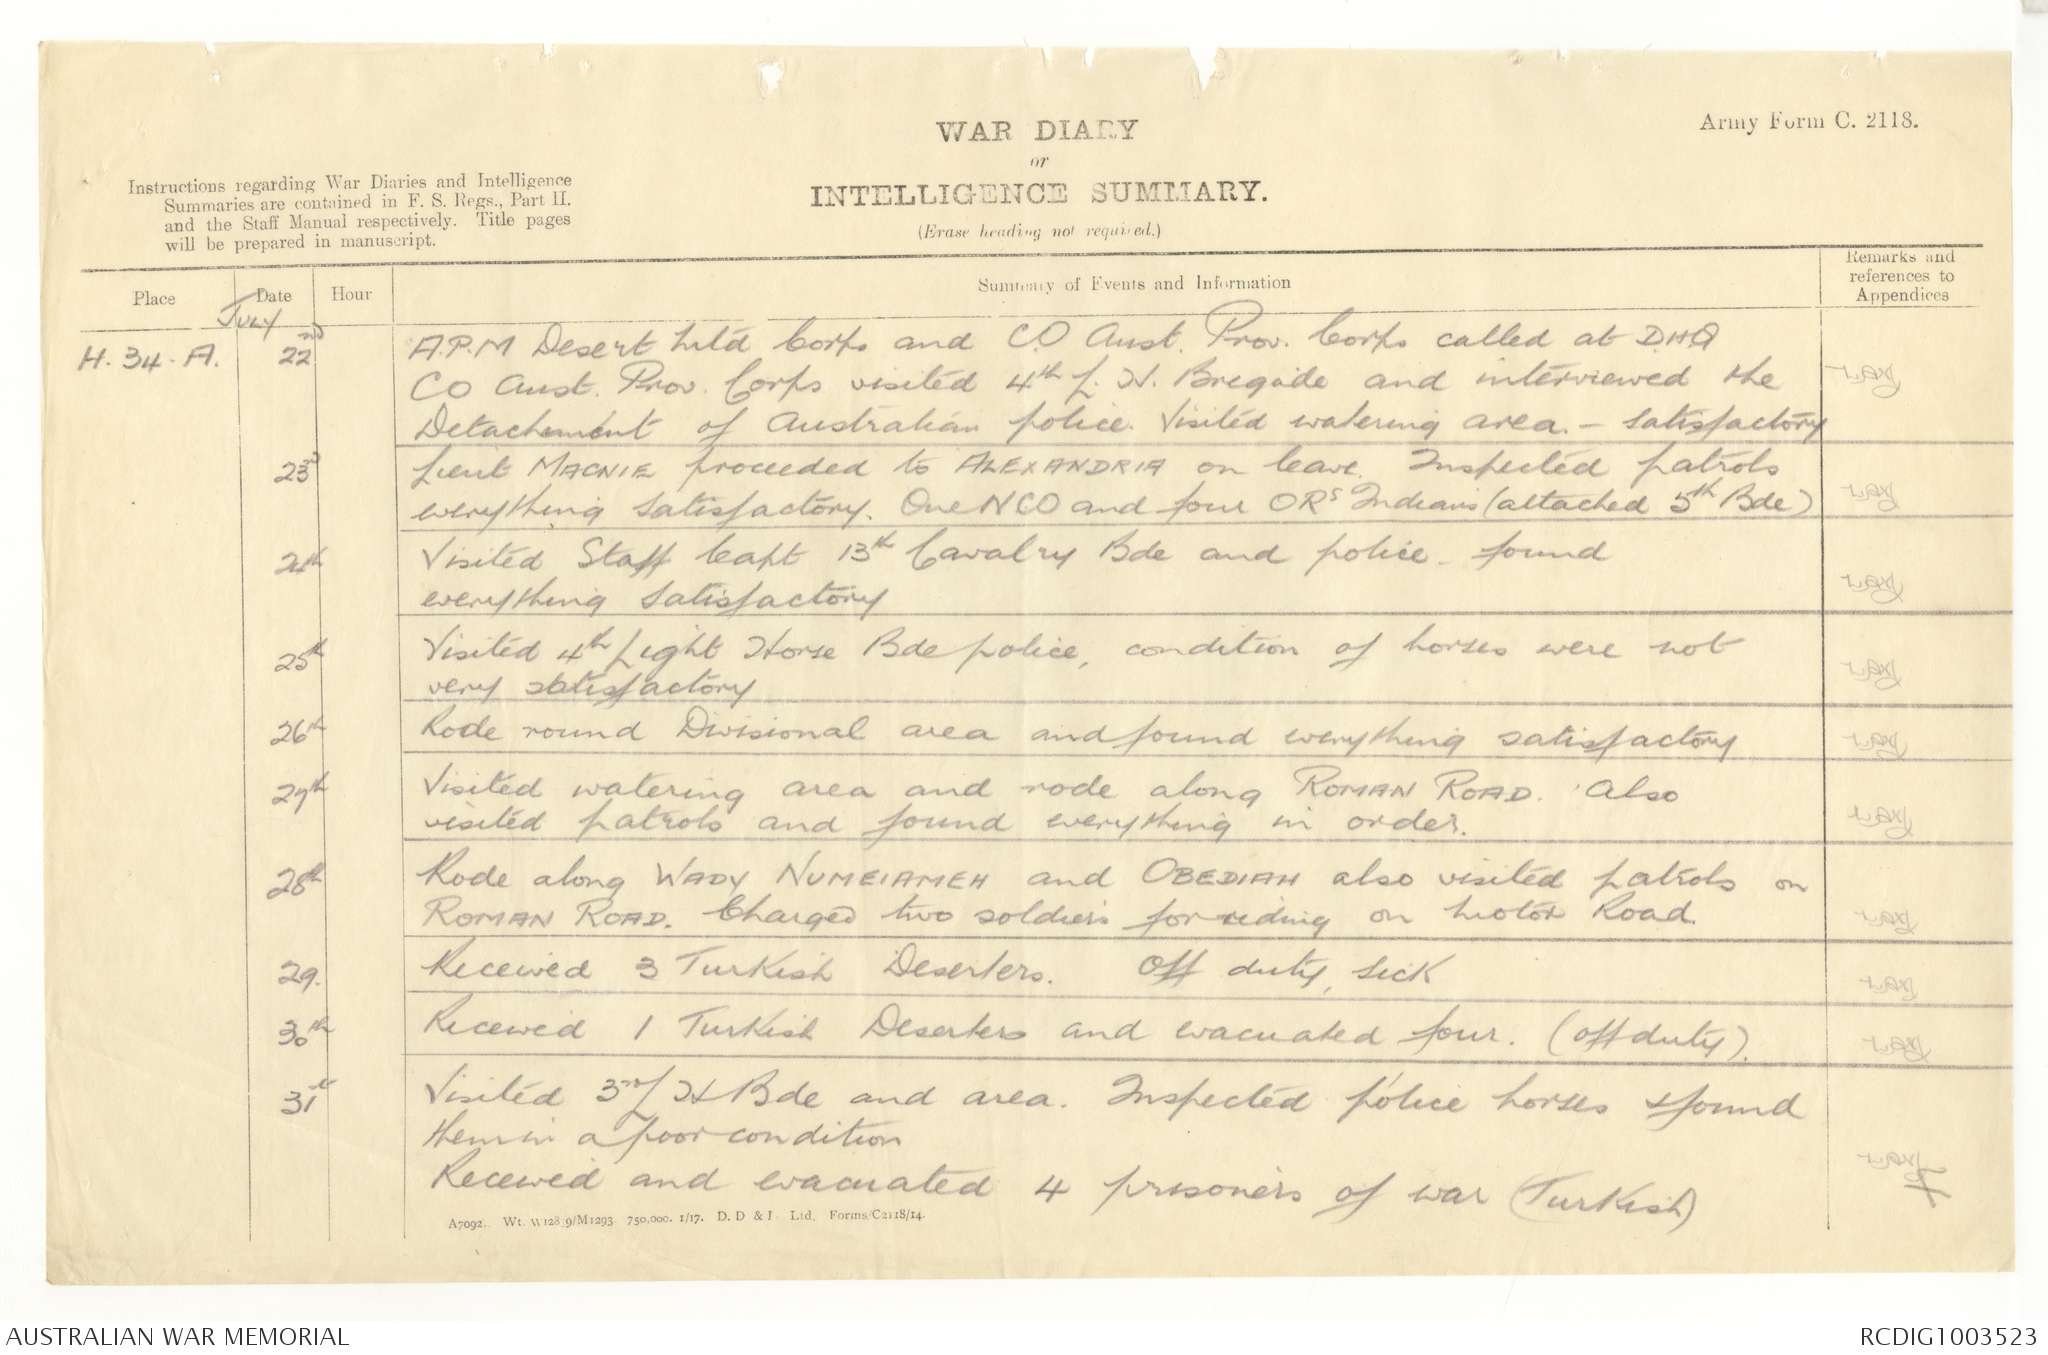 Army Form C. 2118.
WAR DIARY
or
INTELLIGENCE SUMMARY.
(Erase heading not required.)
Instructions regarding War Diaries and Intelligence
Summaries are contained in F. S. Regs., Part II.
and the Staff Manual respectively. Title pages
will be prepared in manuscript.
Place Date Hour Summary of Events and Information Remarks and references to Appendices
July
H. 34. A. 22nd A.P.M Desert Mtd Corps and C.O Aust. Prov. Corps called at D.H.Q
CO Aust. Prov. Corps visited 4th L. H. Bregade and interviewed the
Detachement of Australian police. Visited watering area. - satisfactory
23rd Lieut MACNIE proceeded to ALEXANDRIA on leave. Inspected patrols
everything satisfactory. One NCO and four ORs Indians (attached 5th Bde)
24th Visited Staff Capt 13th Cavalry Bde and police - found
everything satisfactory
25th Visited 4th Light Horse Bde police, condition of horses were not
very satisfactory
26th Rode round Divisional area and found everything satisfactory
27th Visited watering area and rode along ROMAN ROAD. Also
visited patrols and found everything in order.
28th Rode along WADY NUMEIAMEH and OBEDIAH also visited patrols on
ROMAN ROAD. Charged two soldiers for riding on Motor Road.
29. Received 3 Turkish Deserters. Off duty, sick
30th Received 1 Turkish Deserters and evacuated four. (off duty).
31st Visited 3rd L H Bde and area. Inspected police horses & found
them in a poor condition
Received and evacuated 4 prisoners of war (Turkish)
A7092. Wt. W128.9/M1293 750,000. 1/17. D. D & L. Ltd. Forms/C2118/14.
AUSTRALIAN WAR MEMORIAL
RCDIG1003523